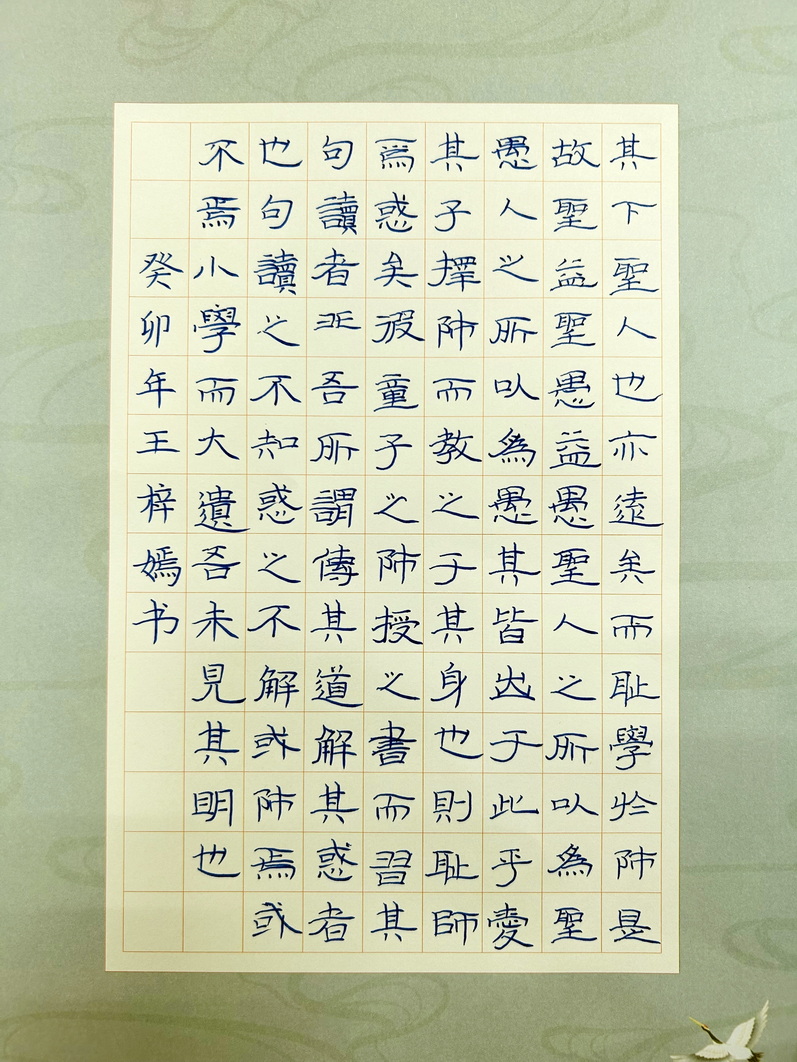 其下聖人也亦遠矣而耻學於師是
故聖益聖愚益愚聖人之所以為聖
愚人之所以為愚其皆出于此乎愛
其子擇師而教之于其身也則耻師
焉惑矣彼童子之師授之書而習其
句讀者非吾所謂傳其道解其惑者
也句讀之不知惑之不解或師焉或
不焉小學而大遺吾未見其明也
癸卯年王梓嫣书